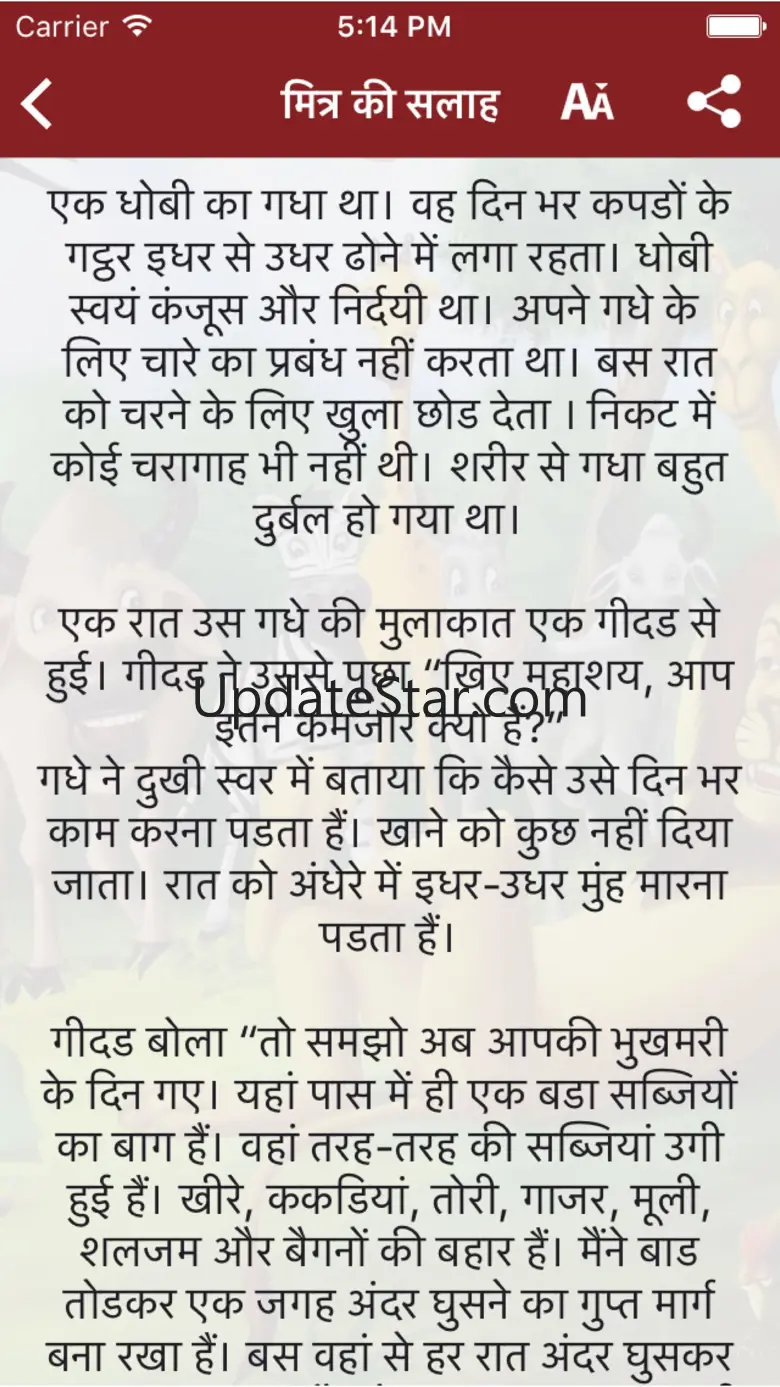 Carrier
5:14 PM
मित्र की सलाह
AA
एक धोबी का गधा था। वह दिन भर कपडों के
गट्ठर इधर से उधर ढोने में लगा रहता। धोबी
स्वयं कंजूस और निर्दयी था। अपने गधे के
लिए चारे का प्रबंध नहीं करता था। बस रात
को चरने के लिए खुला छोड देता । निकट में
कोई चरागाह भी नहीं थी। शरीर से गधा बहुत
दुर्बल हो गया था।
एक रात उस गधे की मुलाकात एक गीदड से
हुई। गीदड ने उससे पूछा “खिए महाशय, आप
UpdateStar.com
इतने कमजोर क्यों हैं?”
गधे ने दुखी स्वर में बताया कि कैसे उसे दिन भर
काम करना पडता हैं। खाने को कुछ नहीं दिया
जाता। रात को अंधेरे में इधर-उधर मुंह मारना
पडता हैं।
गीदड बोला “तो समझो अब आपकी भुखमरी
के दिन गए। यहां पास में ही एक बडा सब्जियों
का बाग हैं। वहां तरह-तरह की सब्जियां उगी
हुई हैं। खीरे, ककडियां, तोरी, गाजर, मूली,
शलजम और बैगनों की बहार हैं। मैंने बाड
तोडकर एक जगह अंदर घुसने का गुप्त मार्ग
बना रखा हैं। बस वहां से हर रात अंदर घुसकर